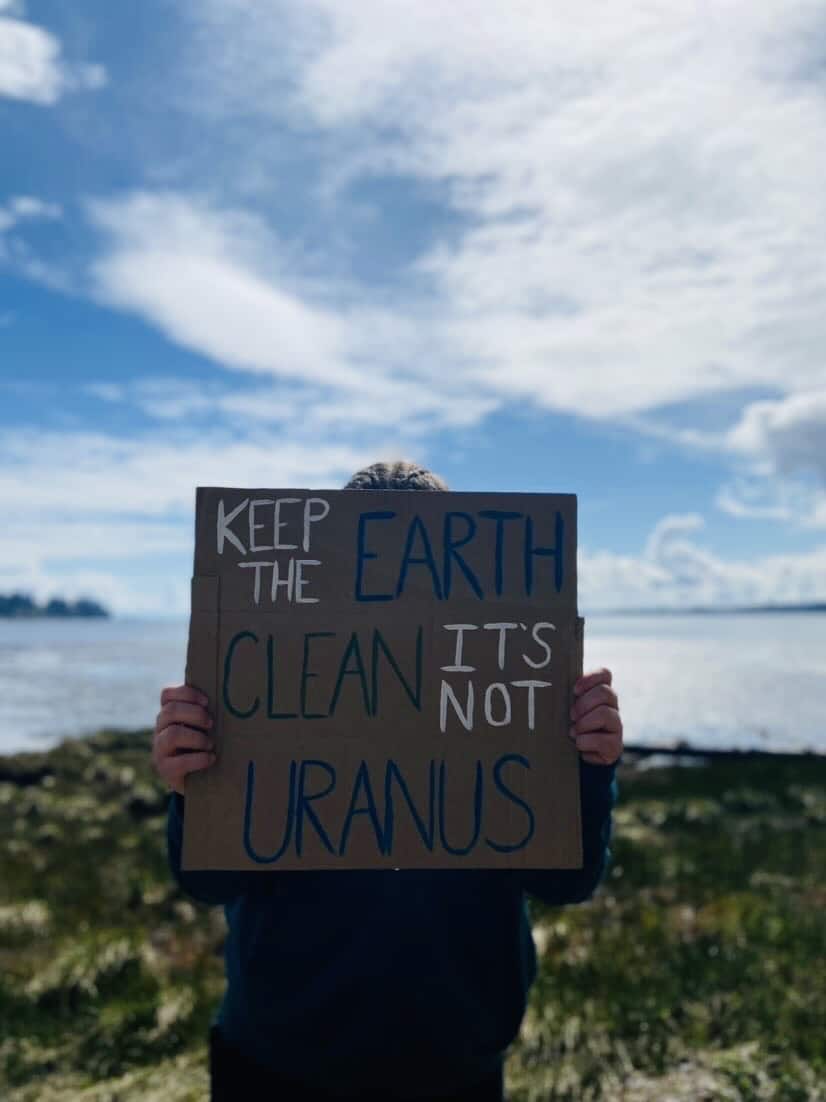 KEEP
THE EARTH
CLEAN IT'S
NOT
URANUS